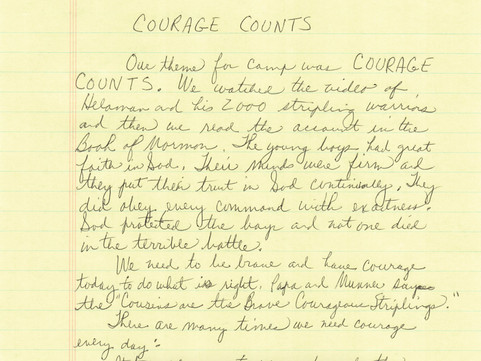 COURAGE COUNTS
Our theme for camp was COURAGE
COUNTS. We watched the video of
Helaman and his 2000 stripling warriors
and then we read the account in the
Book of Mormon. The young boys had great
faith in God. Their minds were firm and
they put their trust in God continually. They
did obey every command with exactness.
God protected the boys and not one died
in the terrible battle.
We need to be brave and have courage
today to do what is right. Papa and Munner says
the "Cousins are the Brave Courageous Striplings."
There are many times we need courage
every day: